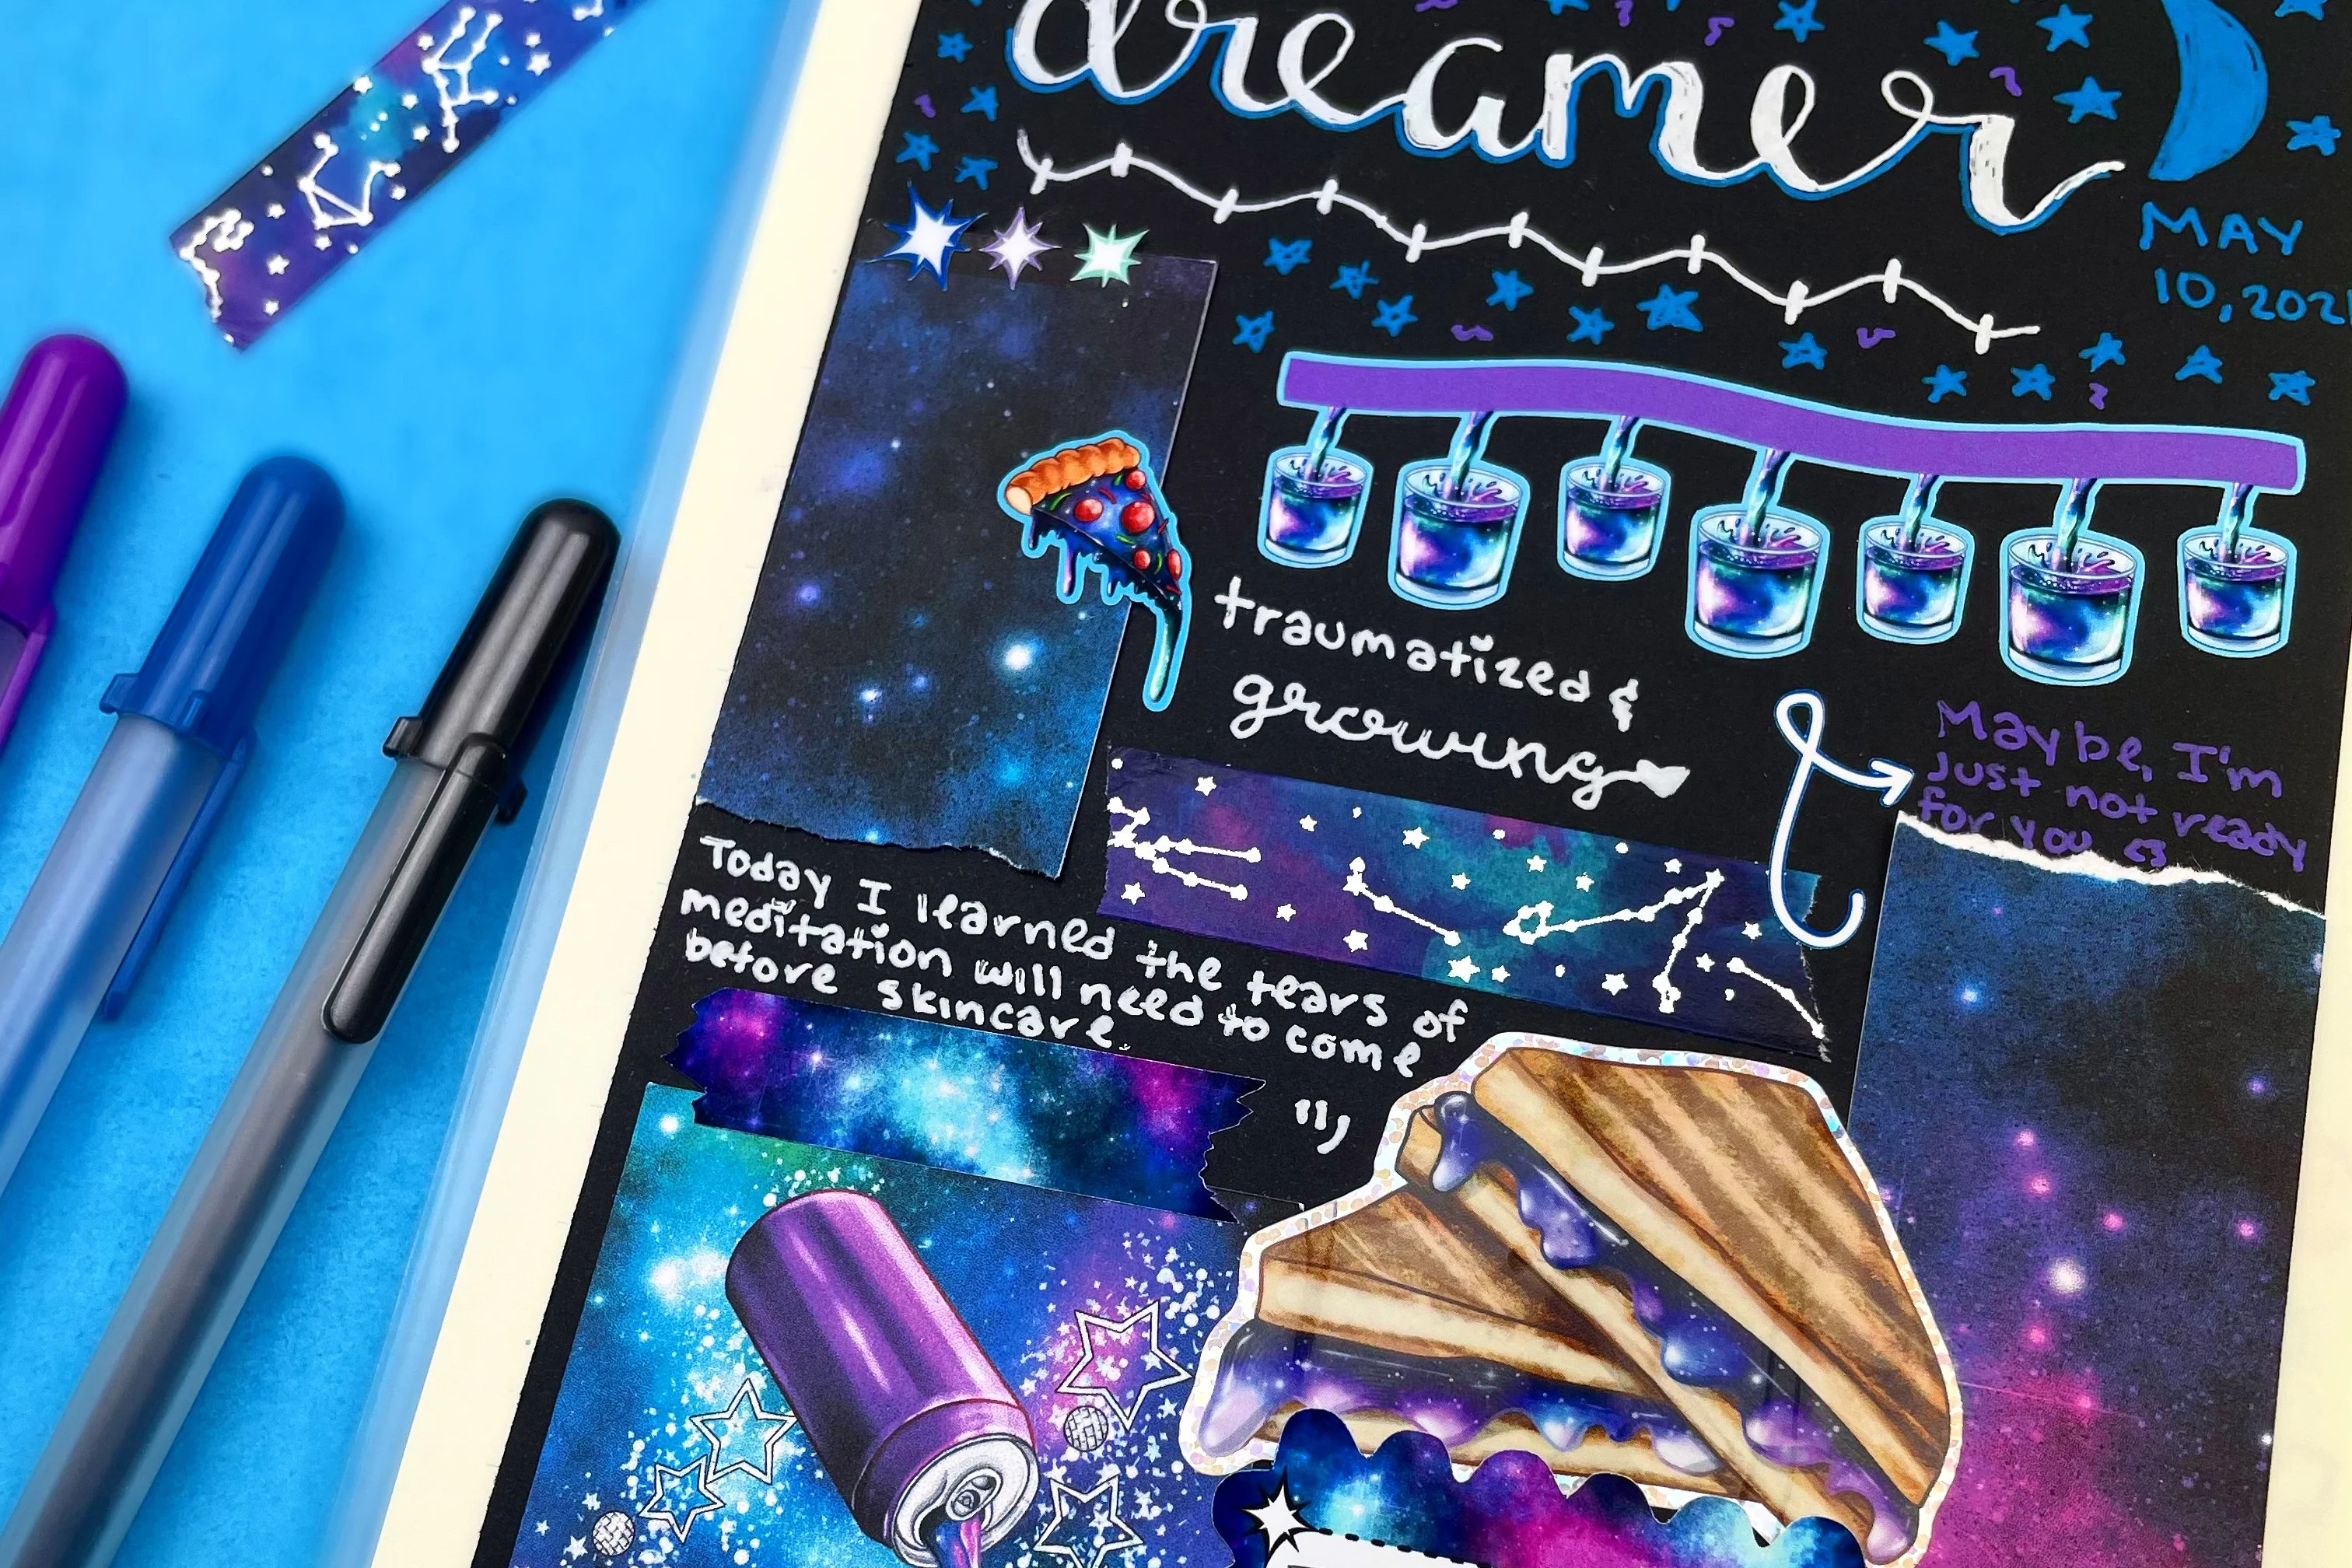 dreamer
MAY
10, 2021
traumatized &
growing
Maybe, I'm
just not ready
for you <3
Today I learned the tears of
meditation will need to come
before skincare.